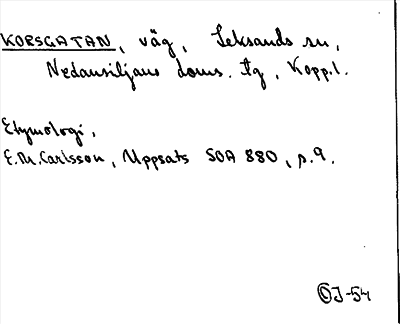 KORSGATAN, väg, Leksands sn,
Nedansiljans doms. tg, Kopp.l.
Etymologi,
E.M. Carlsson, Uppsats SOA 880, s.9.
OJ-54